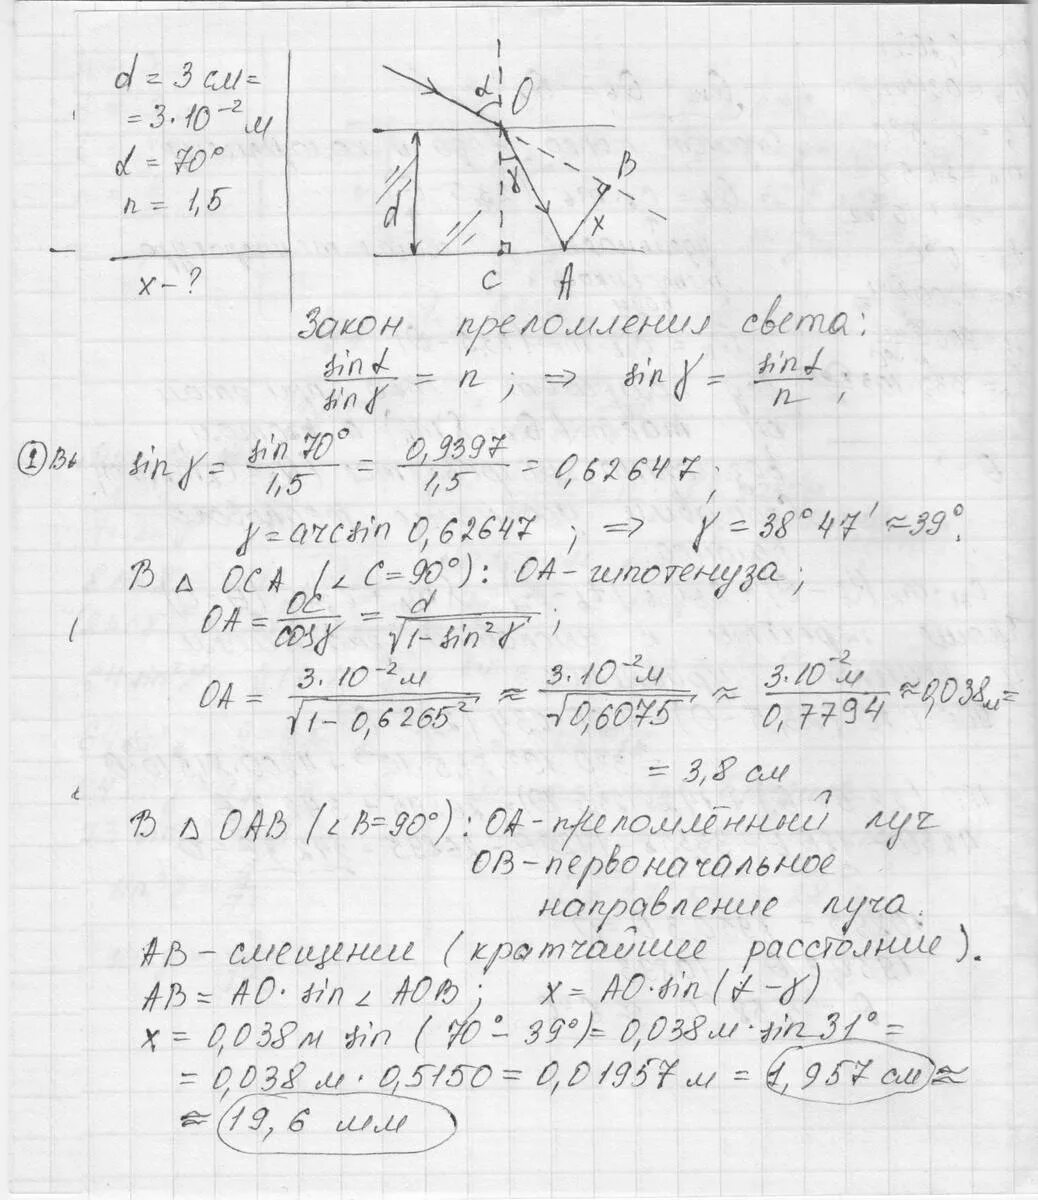 d = 3 см =
= 3·10⁻² м
α = 70°
n = 1,5
x – ?
α
O
γ
B
d
x
C
A
Закон преломления света:
sin α / sin γ = n ; ⇒ sin γ = sin α / n ;
① Вь
sin γ = sin 70° / 1,5 = 0,9397 / 1,5 = 0,62647 ;
γ = arcsin 0,62647 ; ⇒ γ = 38° 47' ≈ 39°.
В △ OCA (∠ C = 90°) : OA – гипотенуза ;
OA = OC / cos γ = d / √(1 – sin² γ) ;
OA = 3·10⁻² м / √(1 – 0,6265²) ≈ 3·10⁻² м / √0,6075 ≈ 3·10⁻² м / 0,7794 ≈ 0,038 м =
= 3,8 см
В △ OAB (∠ B = 90°) : OA – преломлённый луч
OB – первоначальное
направление луча.
AB – смещение (кратчайшее расстояние).
AB = AO · sin ∠ AOB ; x = AO · sin (α – γ)
x = 0,038 м sin (70° – 39°) = 0,038 м · sin 31° =
= 0,038 м · 0,5150 = 0,01957 м = 1,957 см ≈
≈ 19,6 мм